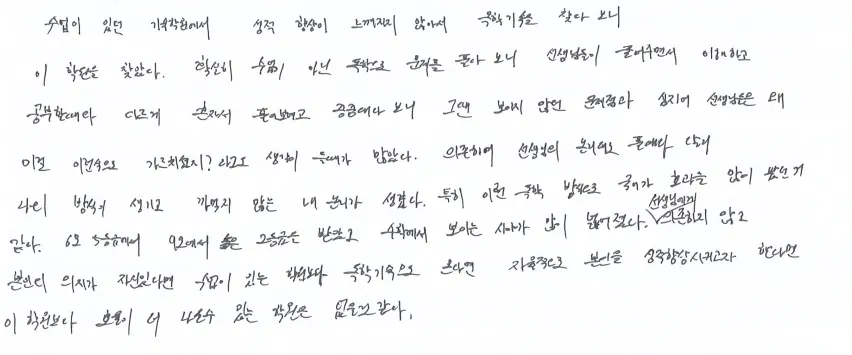 수업이 있던 기숙학원에서 성적 향상이 느껴지지 않아서 독학기숙을 찾다 보니
이 학원을 찾았다. 확실히 수업이 아닌 독학으로 문제를 풀다 보니 선생님들이 풀어주면서 이해하고
공부할때와 다르게 혼자서 풀어보려고 끙끙대다 보니 그땐 보이지 않던 문제점과 심지어 선생님들은 왜
이걸 이런식으로 가르치셨지? 라고도 생각이 들때가 많았다. 의존하며 선생님의 논리대로 풀때와 달리
나의 방식이 생기고 까먹지 않는 내 논리가 생겼다. 특히 이런 독학 방식으로 국어가 효과를 많이 봤던거
같다. 6모 5등급에서 9모에서 2등급을 받았고 수학에서 보이는 시야가 많이 넓어졌다. 선생님에게 의존하지 않고
본인의 의지가 자신있다면 수업이 있는 학원보다 독학기숙으로 온다면 자율적으로 본인을 성적향상시키고자 한다면
이 학원보다 효율이 더 나올수 있는 학원은 없을것 같다.